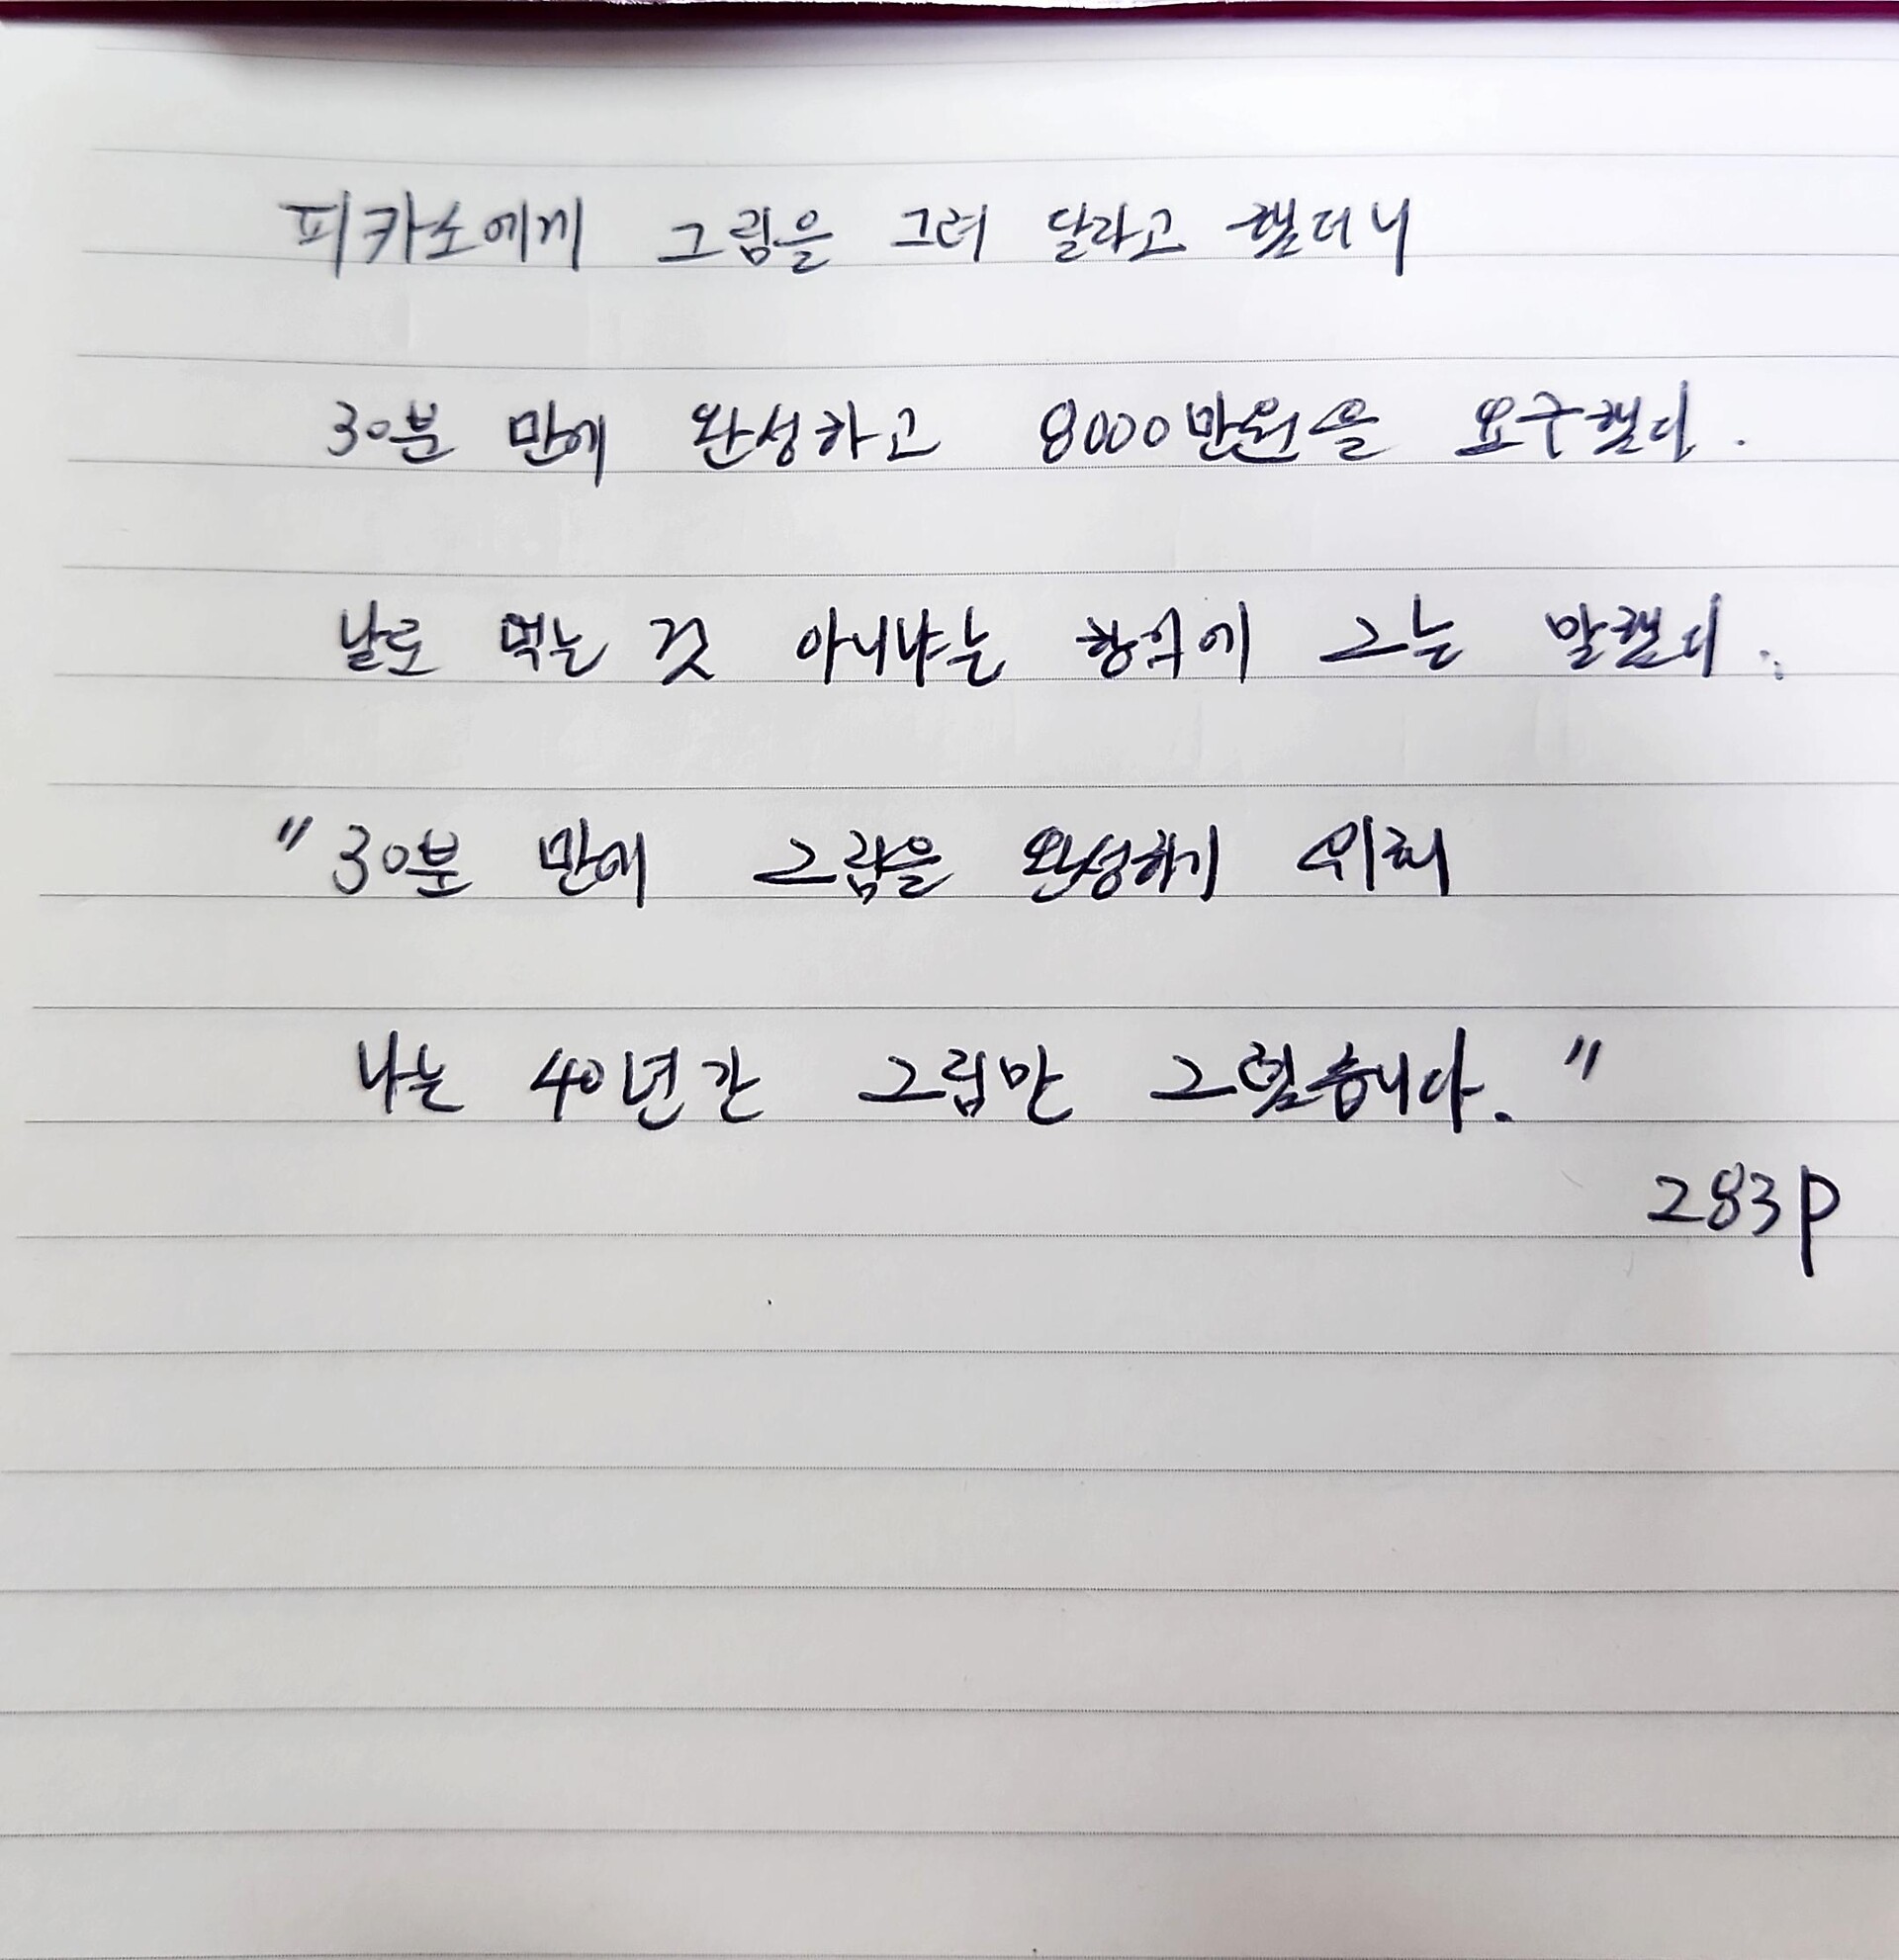 피카소에게 그림을 그려 달라고 했더니
30분 만에 완성하고 8000만원을 요구했다.
날로 먹는 것 아니냐는 항의에 그는 말했다.
"30분 만에 그림을 완성하기 위해
나는 40년간 그림만 그렸습니다."
283p